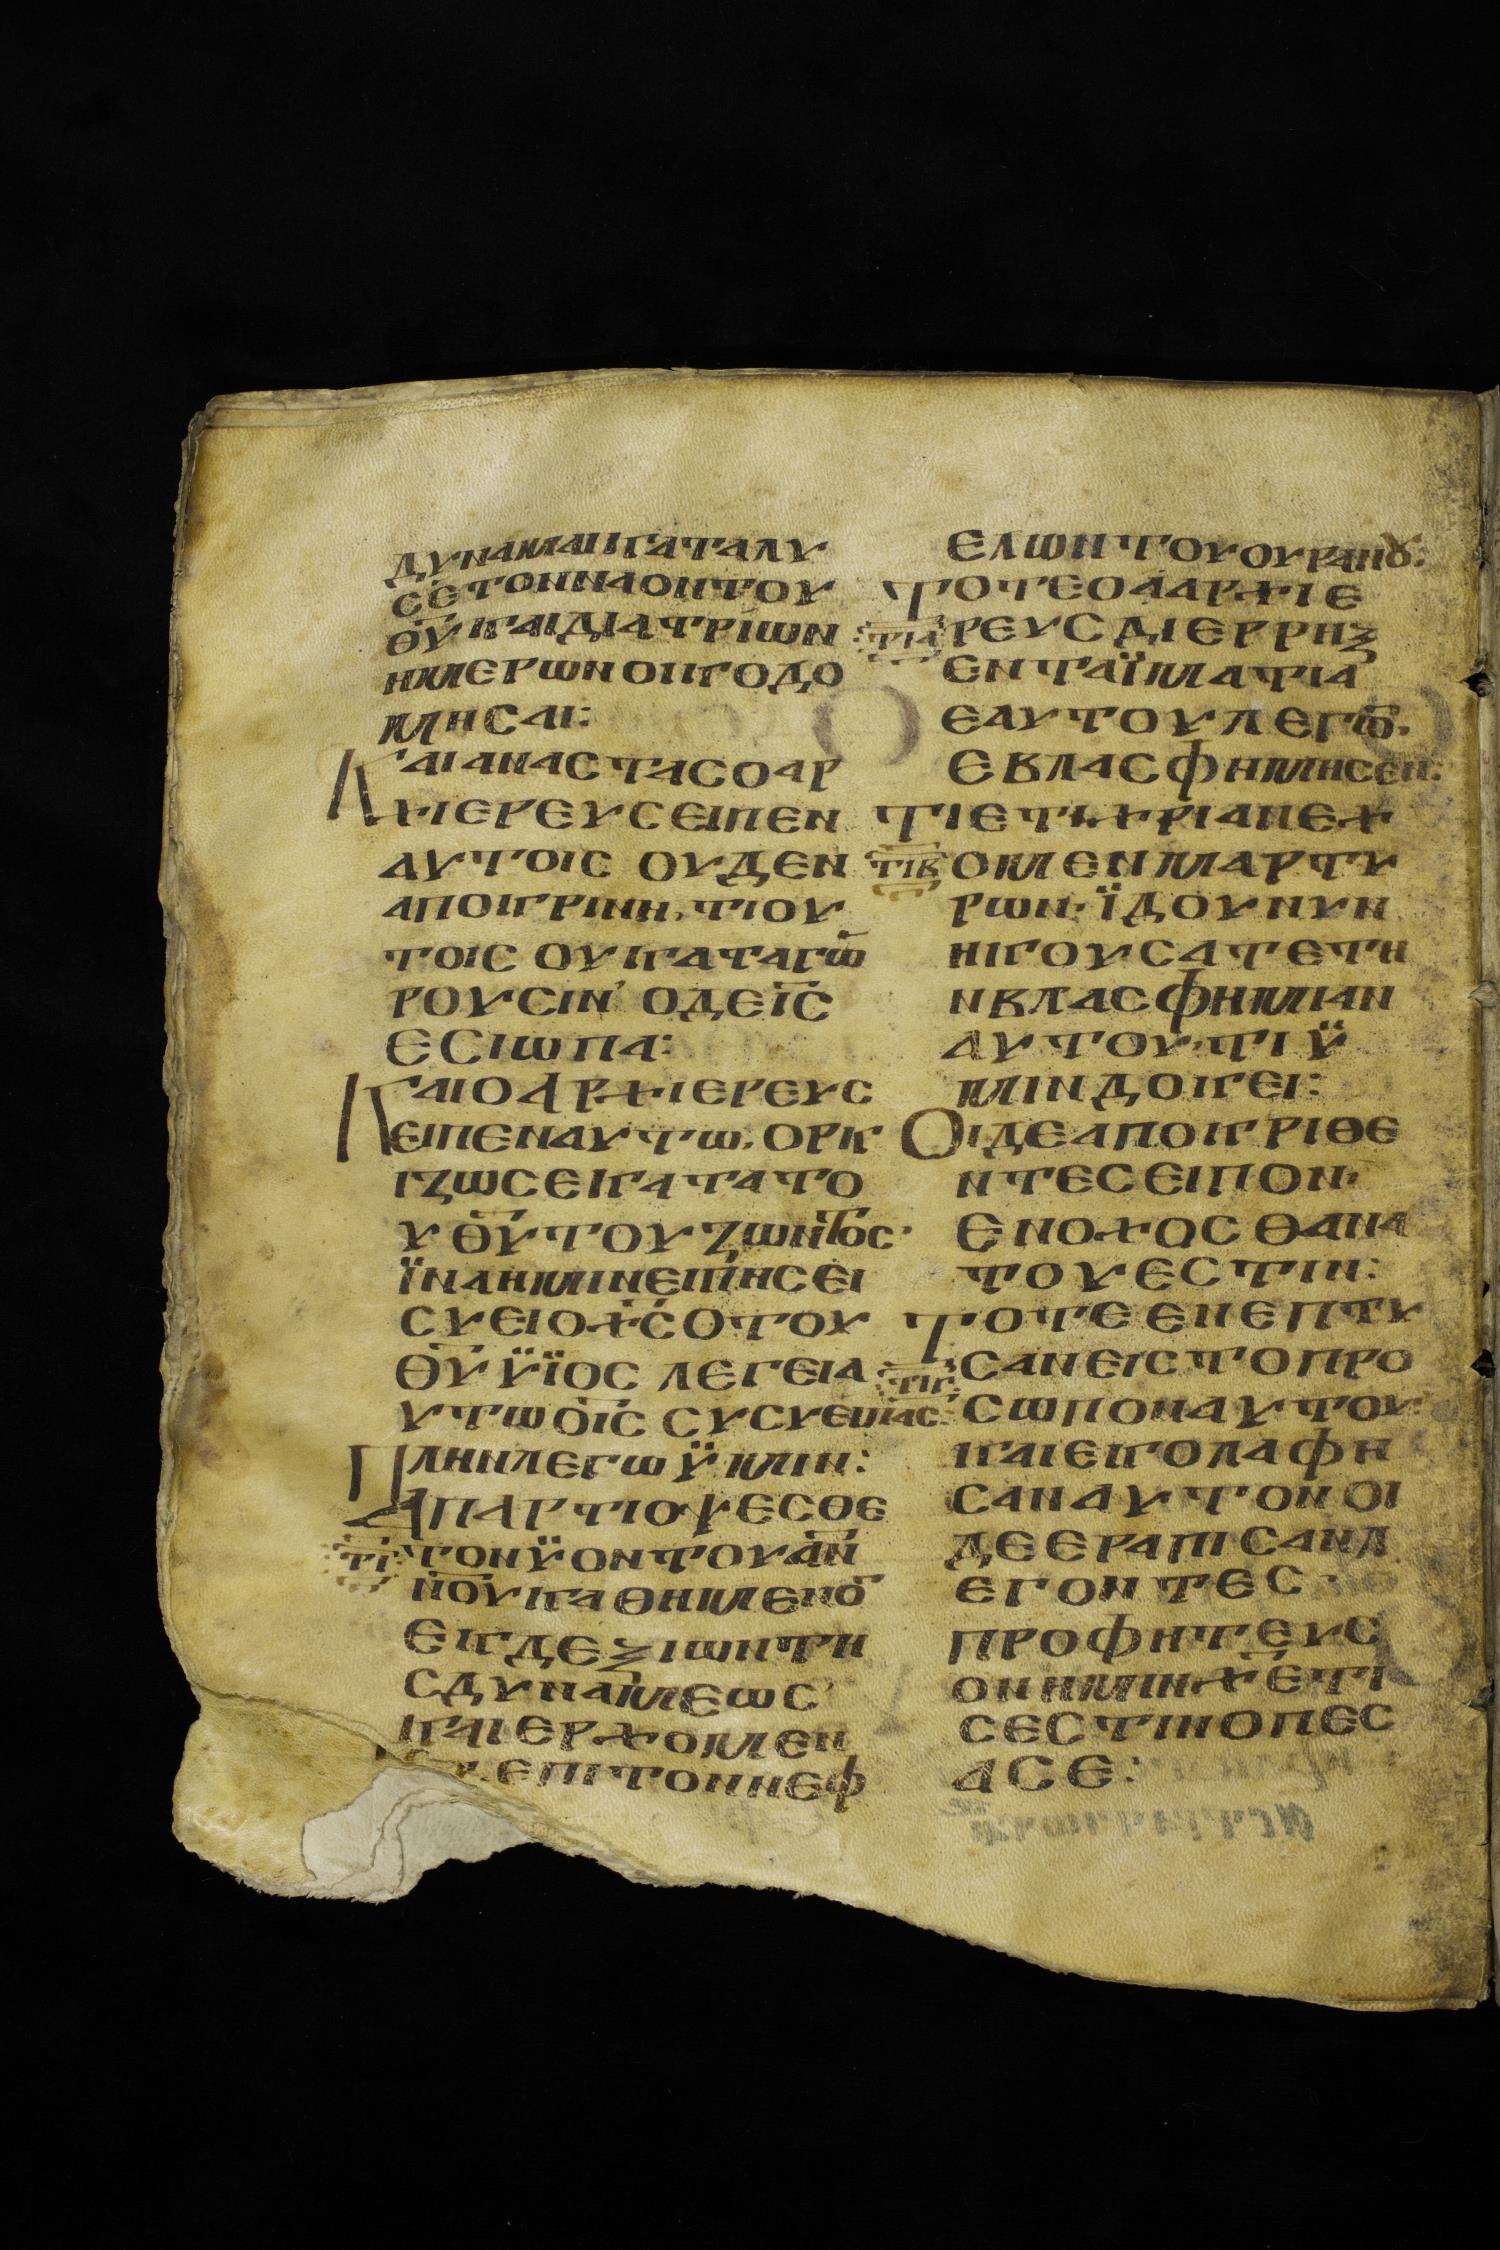 ΔΥΝΑΜΑΙΚΑΤΑΛΥ
ΣΕΤΟΝΝΑΟΝΤΟΥ
Θ̅Υ̅ΚΑΙΔΙΑΤΡΙΩΝ
ΗΜΕΡΩΝΟΙΚΟΔΟ
ΜΗΣΑΙ:
ΚΑΙΑΝΑΣΤΑΣΟΑΡ
ΧΙΕΡΕΥΣΕΙΠΕΝ
ΑΥΤΟΙΣ ΟΥΔΕΝ
ΑΠΟΚΡΙΝΗ·ΤΙΟΥ
ΤΟΙΣ ΟΥΚΑΤΑΓΩ
ΡΟΥΣΙΝ' ΟΔΕΙ̅Σ̅
ΕΣΙΩΠΑ:
ΚΑΙΟΑΡΧΙΕΡΕΥΣ
ΕΙΠΕΝΑΥΤΩ·ΟΡΚ
ΙΖΩΣΕΙΚΑΤΑΤΟ
ΥΘ̅Υ̅ΤΟΥΖΩΝΤΟΣ·
ΪΝΑΗΜΙΝΕΙΠΗΣΕΙ
ΣΥΕΙΟΧ̅Σ̅ΟΤΟΥ
Θ̅Υ̅ΫΪΟΣ ΛΕΓΕΙΑ
ΥΤΩΟΙ̅Σ̅ ΣΥΣΥΕΙΠΑΣ:
ΠΛΗΝΛΕΓΩΫΜΙΝ:
ΑΠΑΡΤΙΟΨΕΣΘΕ
Τ̅Ι̅ ΤΟΝΫΟΝΤΟΥΑ̅Ν̅
Ν̅Ο̅Υ̅ΚΑΘΗΜΕΝΟ̅
ΕΚΔΕΞΙΩΝΤΗ
ΣΔΥΝΑΜΕΩΣ'
ΚΑΙΕΡΧΟΜΕΝ
ΕΠΙΤΟΝΝΕΦ
ΕΛΩΝΤΟΥΟΥΡΑΝΟΥ:
ΤΟΤΕΟΑΑΡΧΙΕ
Τ̅Ι̅Α̅ ΡΕΥΣΔΙΕΡΡΗΞ
ΕΝΤΑΪΜΑΤΙΑ
ΕΑΥΤΟΥΛΕΓΩ̅·
ΕΒΛΑΣΦΗΜΗΣΕΝ:
ΤΙΕΤΙΧΡΙΑΝΕΧ
Τ̅Ι̅Β̅ ΟΜΕΝΜΑΡΤΥ
ΡΩΝ·ΪΔΟΥΝΥΝ
ΗΚΟΥΣΑΤΕΤΗ
ΝΒΛΑΣΦΗΜΙΑΝ
ΑΥΤΟΥ·ΤΙΫ
ΜΙΝΔΟΚΕΙ:
ΟΙΔΕΑΠΟΚΡΙΘΕ
ΝΤΕΣΕΙΠΟΝ·
ΕΝΟΧΟΣΘΑΝΑ
ΤΟΥΕΣΤΙΝ:
ΤΟΤΕΕΝΕΠΤΥ
Τ̅Ι̅Γ̅ ΣΑΝΕΙΣΤΟΠΡΟ
ΣΩΠΟΝΑΥΤΟΥ
ΚΑΙΕΚΟΛΑΦΗ
ΣΑΝΑΥΤΟΝΟΙ
ΔΕΕΡΑΠΙΣΑΝΛ
ΕΓΟΝΤΕΣ·
ΠΡΟΦΗΤΕΥΣ
ΟΝΗΜΙΝΧ̅Ε̅ΤΙ
ΣΕΣΤΙΝΟΠΕΣ
ΑΣΕ: